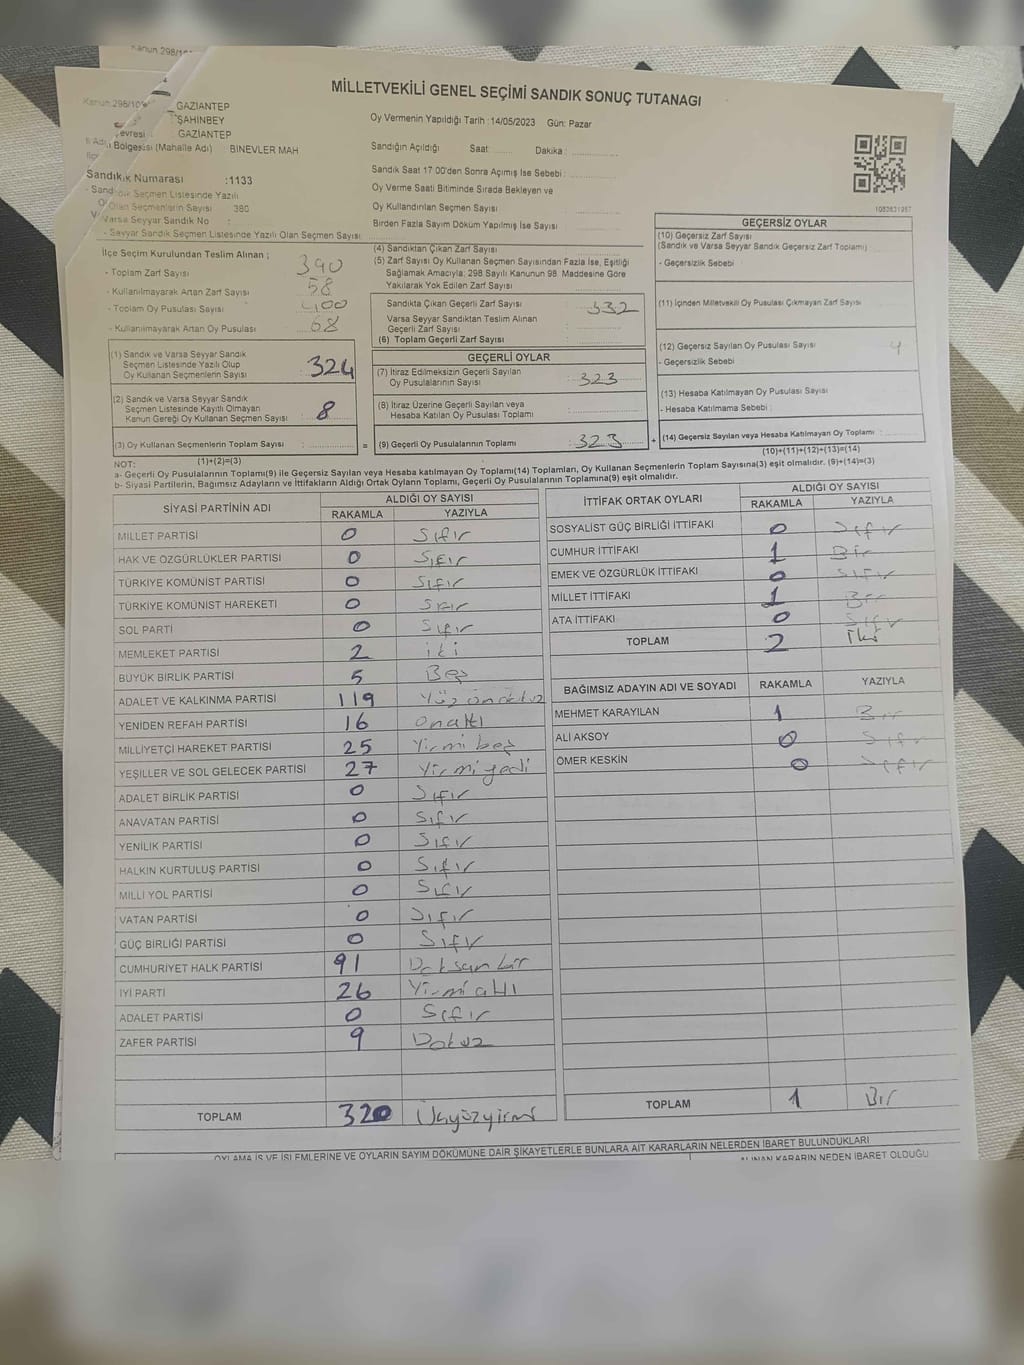 Kanun 298/10
MİLLETVEKİLİ GENEL SEÇİMİ SANDIK SONUÇ TUTANAGI
Kanun 298/10
GAZİANTEP
ŞAHİNBEY
Çevresi GAZİANTEP
Bölgesi (Mahalle Adı) BİNEVLER MAH
Sandık Numarası :1133
Sandık Seçmen Listesinde Yazılı
Olan Seçmenlerin Sayısı 380
Varsa Seyyar Sandık No :
- Seyyar Sandık Seçmen Listesinde Yazılı Olan Seçmen Sayısı
Oy Vermenin Yapıldığı Tarih :14/05/2023 Gün: Pazar
Sandığın Açıldığı Saat: Dakika :
Sandık Saat 17.00'den Sonra Açımış İse Sebebi :
Oy Verme Saati Bitiminde Sırada Bekleyen ve
Oy Kullandırılan Seçmen Sayısı
Birden Fazla Sayım Döküm Yapılmış İse Sayısı
1083631967
İlçe Seçim Kurulundan Teslim Alınan ;
- Toplam Zarf Sayısı 390
- Kullanılmayarak Artan Zarf Sayısı 58
- Toplam Oy Pusulası Sayısı 400
- Kullanılmayarak Artan Oy Pusulası 68
(1) Sandık ve Varsa Seyyar Sandık
Seçmen Listesinde Yazılı Olup
Oy Kullanan Seçmenlerin Sayısı 324
(2) Sandık ve Varsa Seyyar Sandık
Seçmen Listesinde Kayıtlı Olmayan
Kanun Gereği Oy Kullanan Seçmen Sayısı 8
(3) Oy Kullanan Seçmenlerin Toplam Sayısı :
(1)+(2)=(3)
(4) Sandıktan Çıkan Zarf Sayısı
(5) Zarf Sayısı Oy Kullanan Seçmen Sayısından Fazla İse, Eşitliği
Sağlamak Amacıyla; 298 Sayılı Kanunun 98. Maddesine Göre
Yakılarak Yok Edilen Zarf Sayısı
Sandıkta Çıkan Geçerli Zarf Sayısı 332
Varsa Seyyar Sandıktan Teslim Alınan
Geçerli Zarf Sayısı
(6) Toplam Geçerli Zarf Sayısı
GEÇERLİ OYLAR
(7) İtiraz Edilmeksizin Geçerli Sayılan
Oy Pusulalarının Sayısı : 323
(8) İtiraz Üzerine Geçerli Sayılan veya
Hesaba Katılan Oy Pusulası Toplamı
= (9) Geçerli Oy Pusulalarının Toplamı : 323 +
GEÇERSİZ OYLAR
(10) Geçersiz Zarf Sayısı
(Sandık ve Varsa Seyyar Sandık Geçersiz Zarf Toplamı)
- Geçersizlik Sebebi
(11) İçinden Milletvekili Oy Pusulası Çıkmayan Zarf Sayısı
(12) Geçersiz Sayılan Oy Pusulası Sayısı
- Geçersizlik Sebebi
(13) Hesaba Katılmayan Oy Pusulası Sayısı
- Hesaba Katılmama Sebebi
(14) Geçersiz Sayılan veya Hesaba Katılmayan Oy Toplamı
(10)+(11)+(12)+(13)=(14)
NOT:
a- Geçerli Oy Pusulalarının Toplamı(9) ile Geçersiz Sayılan veya Hesaba katılmayan Oy Toplamı(14) Toplamları, Oy Kullanan Seçmenlerin Toplam Sayısına(3) eşit olmalıdır. (9)+(14)=(3)
b- Siyasi Partilerin, Bağımsız Adayların ve İttifakların Aldığı Ortak Oyların Toplamı, Geçerli Oy Pusulalarının Toplamına(9) eşit olmalıdır.
SİYASİ PARTİNİN ADI ALDIĞI OY SAYISI
RAKAMLA YAZIYLA
MİLLET PARTİSİ 0 Sıfır
HAK VE ÖZGÜRLÜKLER PARTİSİ 0 Sıfır
TÜRKİYE KOMÜNİST PARTİSİ 0 Sıfır
TÜRKİYE KOMÜNİST HAREKETİ 0 Sıfır
SOL PARTİ 0 Sıfır
MEMLEKET PARTİSİ 2 iki
BÜYÜK BİRLİK PARTİSİ 5 Beş
ADALET VE KALKINMA PARTİSİ 119 Yüz ondokuz
YENİDEN REFAH PARTİSİ 16 onaltı
MİLLİYETÇİ HAREKET PARTİSİ 25 Yirmi beş
YEŞİLLER VE SOL GELECEK PARTİSİ 27 Yirmi yedi
ADALET BİRLİK PARTİSİ 0 Sıfır
ANAVATAN PARTİSİ 0 Sıfır
YENİLİK PARTİSİ 0 Sıfır
HALKIN KURTULUŞ PARTİSİ 0 Sıfır
MİLLİ YOL PARTİSİ 0 Sıfır
VATAN PARTİSİ 0 Sıfır
GÜÇ BİRLİĞİ PARTİSİ 0 Sıfır
CUMHURİYET HALK PARTİSİ 91 Doksan bir
İYİ PARTİ 26 Yirmi altı
ADALET PARTİSİ 0 Sıfır
ZAFER PARTİSİ 9 Dokuz
TOPLAM 320 Üçyüzyirmi
İTTİFAK ORTAK OYLARI ALDIĞI OY SAYISI
RAKAMLA YAZIYLA
SOSYALİST GÜÇ BİRLİĞİ İTTİFAKI 0 Sıfır
CUMHUR İTTİFAKI 1 Bir
EMEK VE ÖZGÜRLÜK İTTİFAKI 0 Sıfır
MİLLET İTTİFAKI 1 Bir
ATA İTTİFAKI 0 Sıfır
TOPLAM 2 İki
BAĞIMSIZ ADAYIN ADI VE SOYADI RAKAMLA YAZIYLA
MEHMET KARAYILAN 1 Bir
ALİ AKSOY 0 Sıfır
ÖMER KESKİN 0 Sıfır
TOPLAM 1 Bir
OYLAMA İŞ VE İŞLEMLERİNE VE OYLARIN SAYIM DÖKÜMÜNE DAİR ŞİKAYETLERLE BUNLARA AİT KARARLARIN NELERDEN İBARET BULUNDUKLARI
ALINAN KARARIN NEDEN İBARET OLDUĞU